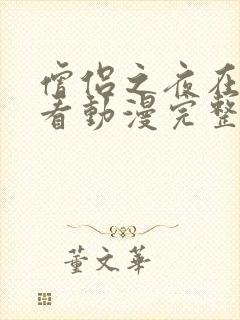 僧侣之夜在
看動漫完整
董文華